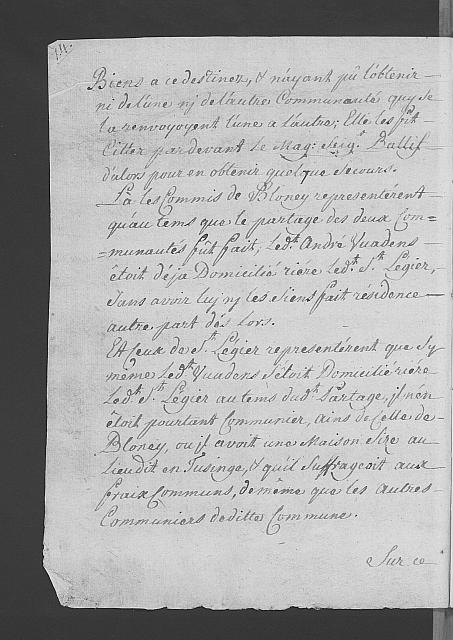 Biens a cedestinez, & n'ayant pû l'obtenir
ni de l'une nj de l'autre Communauté quy se
la renvoyoyent l'une a l'autre; Elle les fit
Citter par devant le Mag: Seigr. Ballif
d'alors pour en obtenir quelque secours.
Là les Commis de Bloney representérent
qu'au tems que le partage des deux Com=
=munautés fût fait, Ledt. André Vuadens
étoit déja Domicilié riére Ledt. St. Légier,
Sans avoir luj nj les Siens fait résidence
autre part dés Lors.
Et Ceux de St. Légier representérent que Sy
même Ledt. Vuadens S'étoit Domicilié riére
Ledt. St. Légier au tems dudt. Partage, il n'en
étoit pourtant Communier, ains de Celle de
Bloney, ou il avoit une Maison Size au
Lieu dit en Tusinge, & qu'il Suffrageoit aux
fraix Communs, de même que les autres
Communiers de ditte Commune.
Sur ce